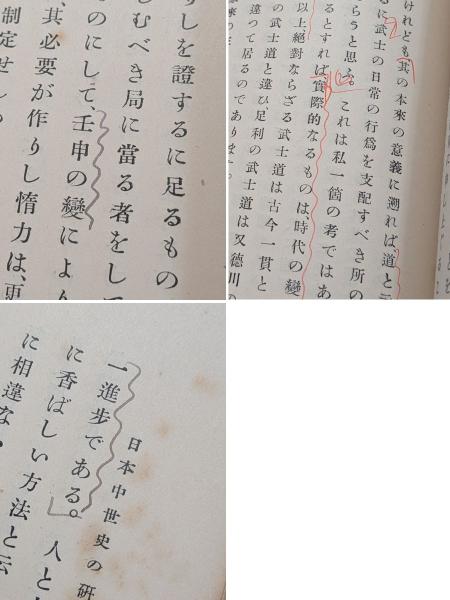 しを證するに足るもの
むべき局に當る者をして
のにして、壬申の變により
其必要が作りし惰力は、更
制定せし
けれども其の本來の意義に溯れば、道と云
に武士の日常の行爲を支配すべき所の
らうと思ふ。これは私一箇の考ではあ
るとすれば實際的なるものは、時代の變
以上絶對ならざる武士道は古今一貫と
の武士道と違ひ、足利の武士道は又德川の
違つて居るのであります。
日本中世史の研
一進步である。人と
に香ばしい方法と云
に相違な